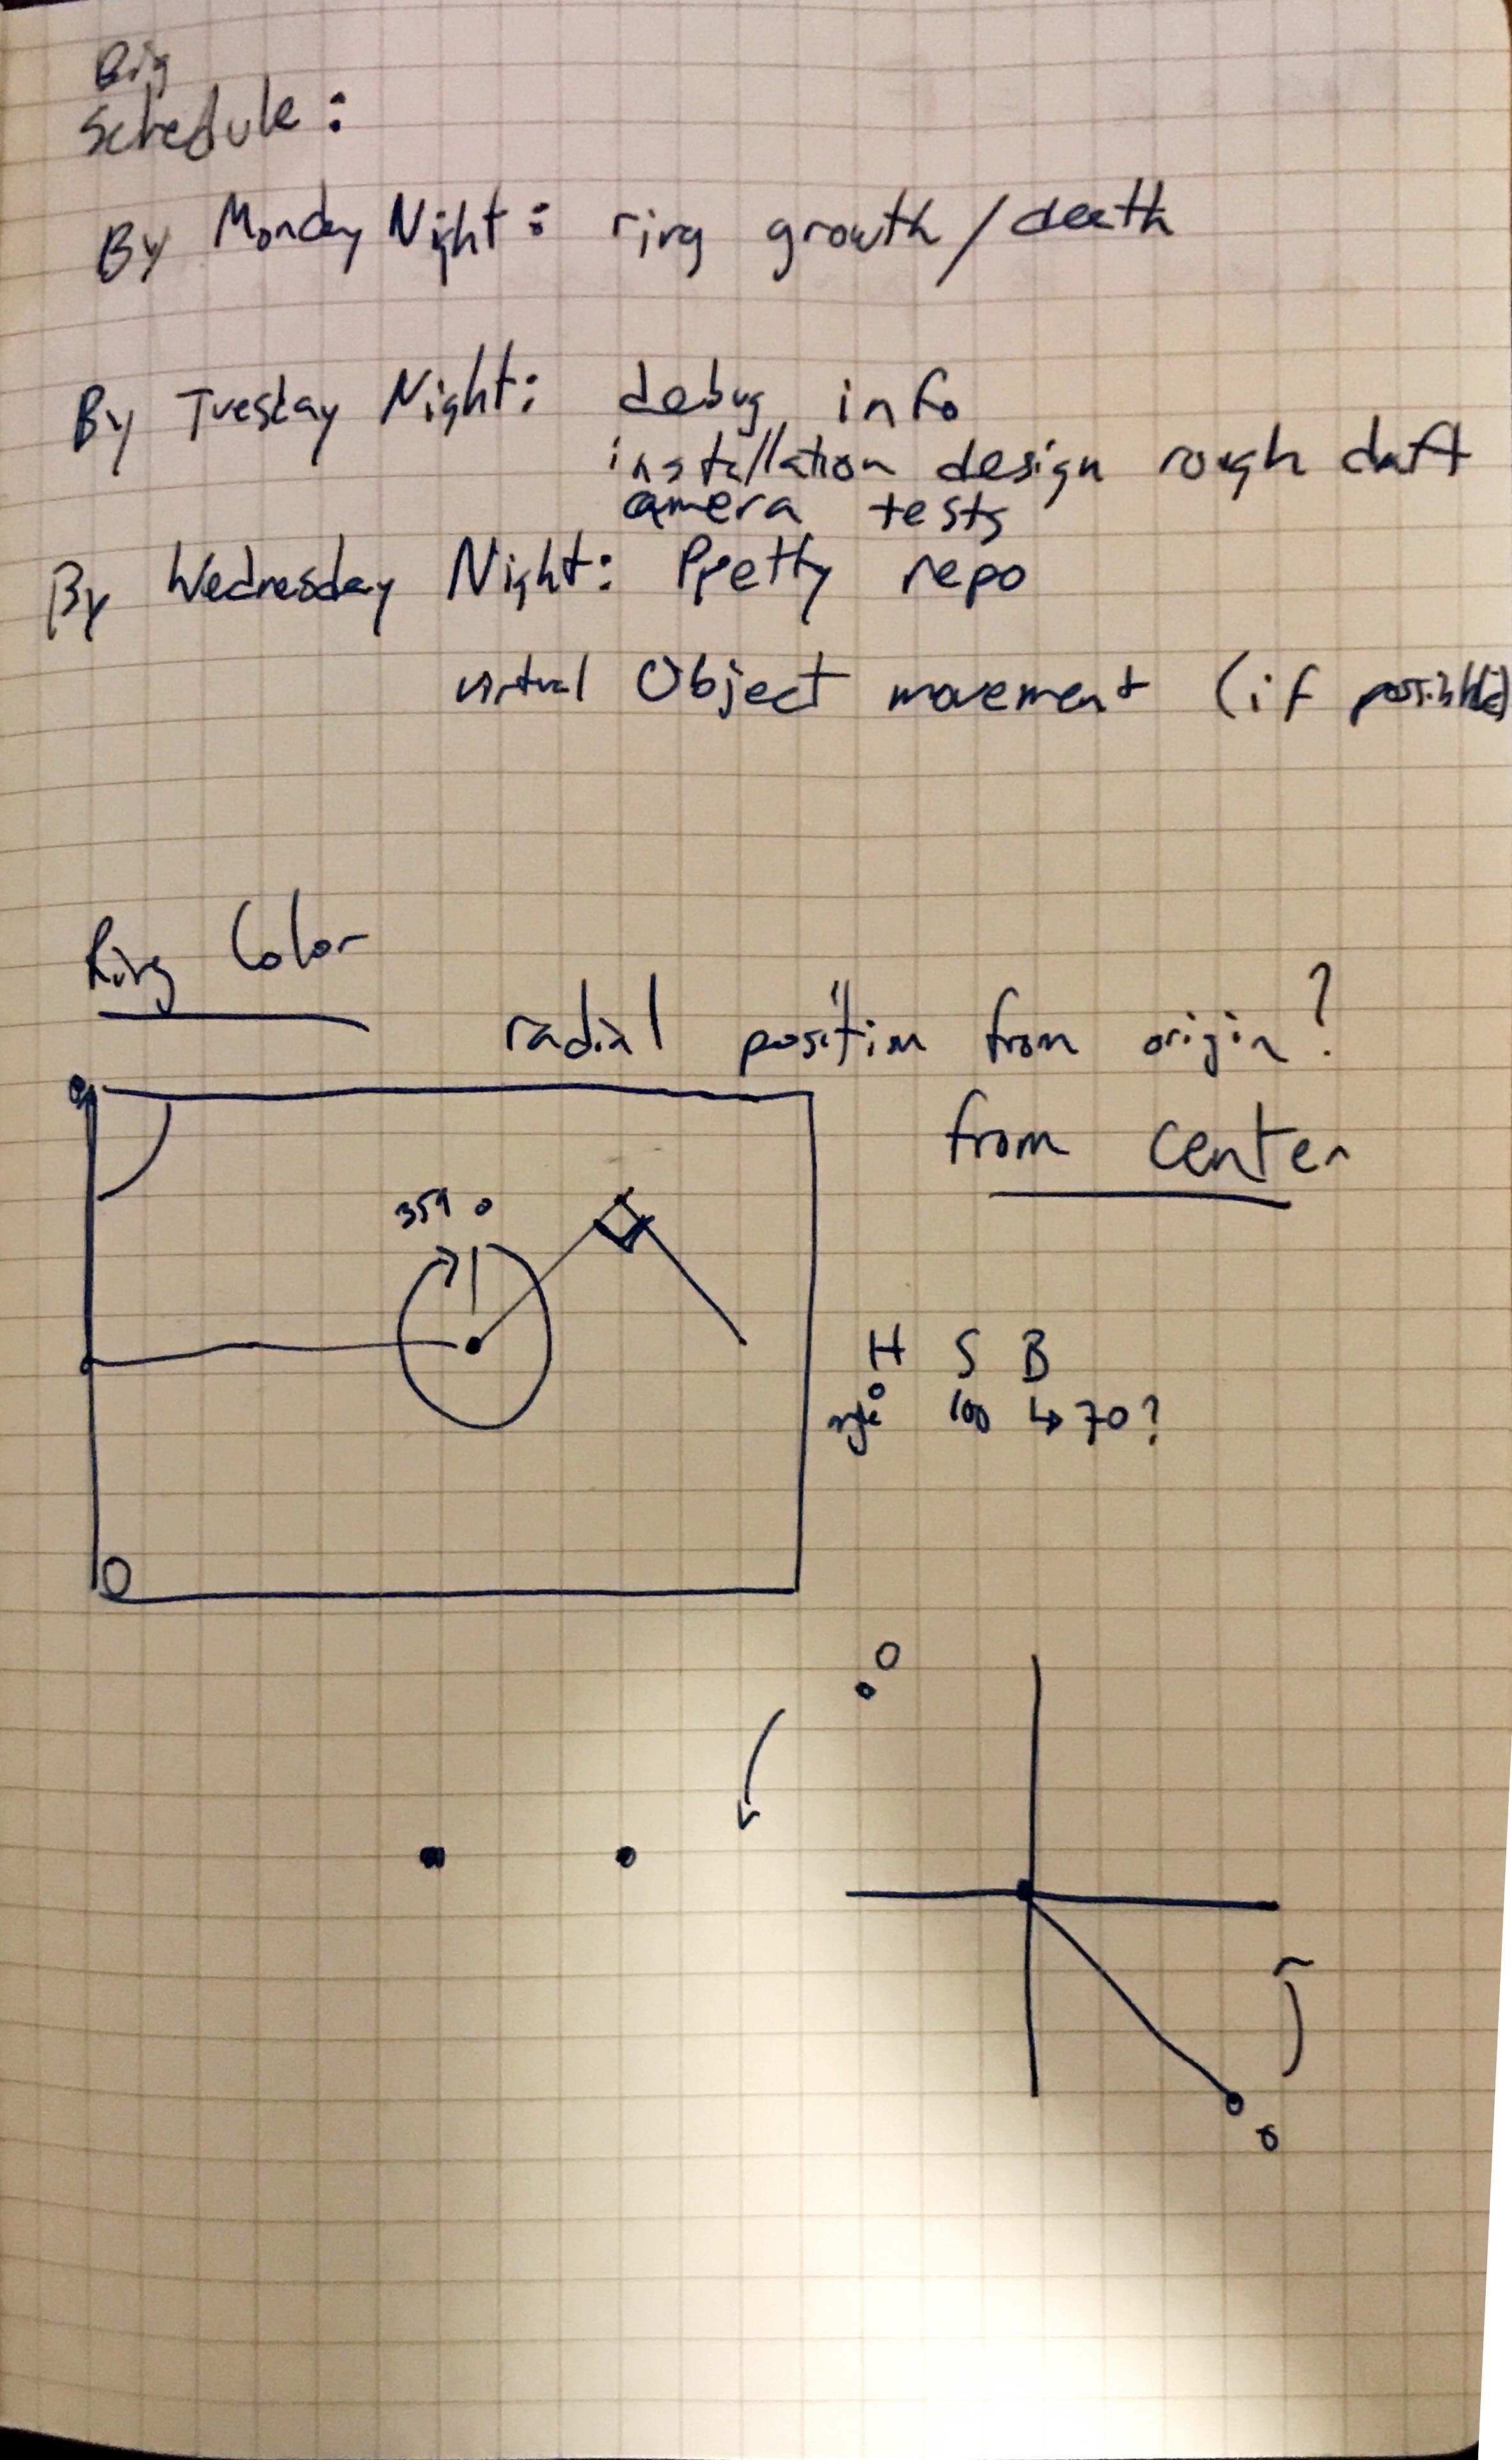 Big
Schedule:
By Monday Night: ring growth/death
By Tuesday Night: debug info
installation design rough daft
camera tests
By Wednesday Night: Pretty repo
virtual Object movement (if possible)
Ring Color
radial position from origin?
from center
359 0
H S B
angle 100 ↳ 70?
O
O